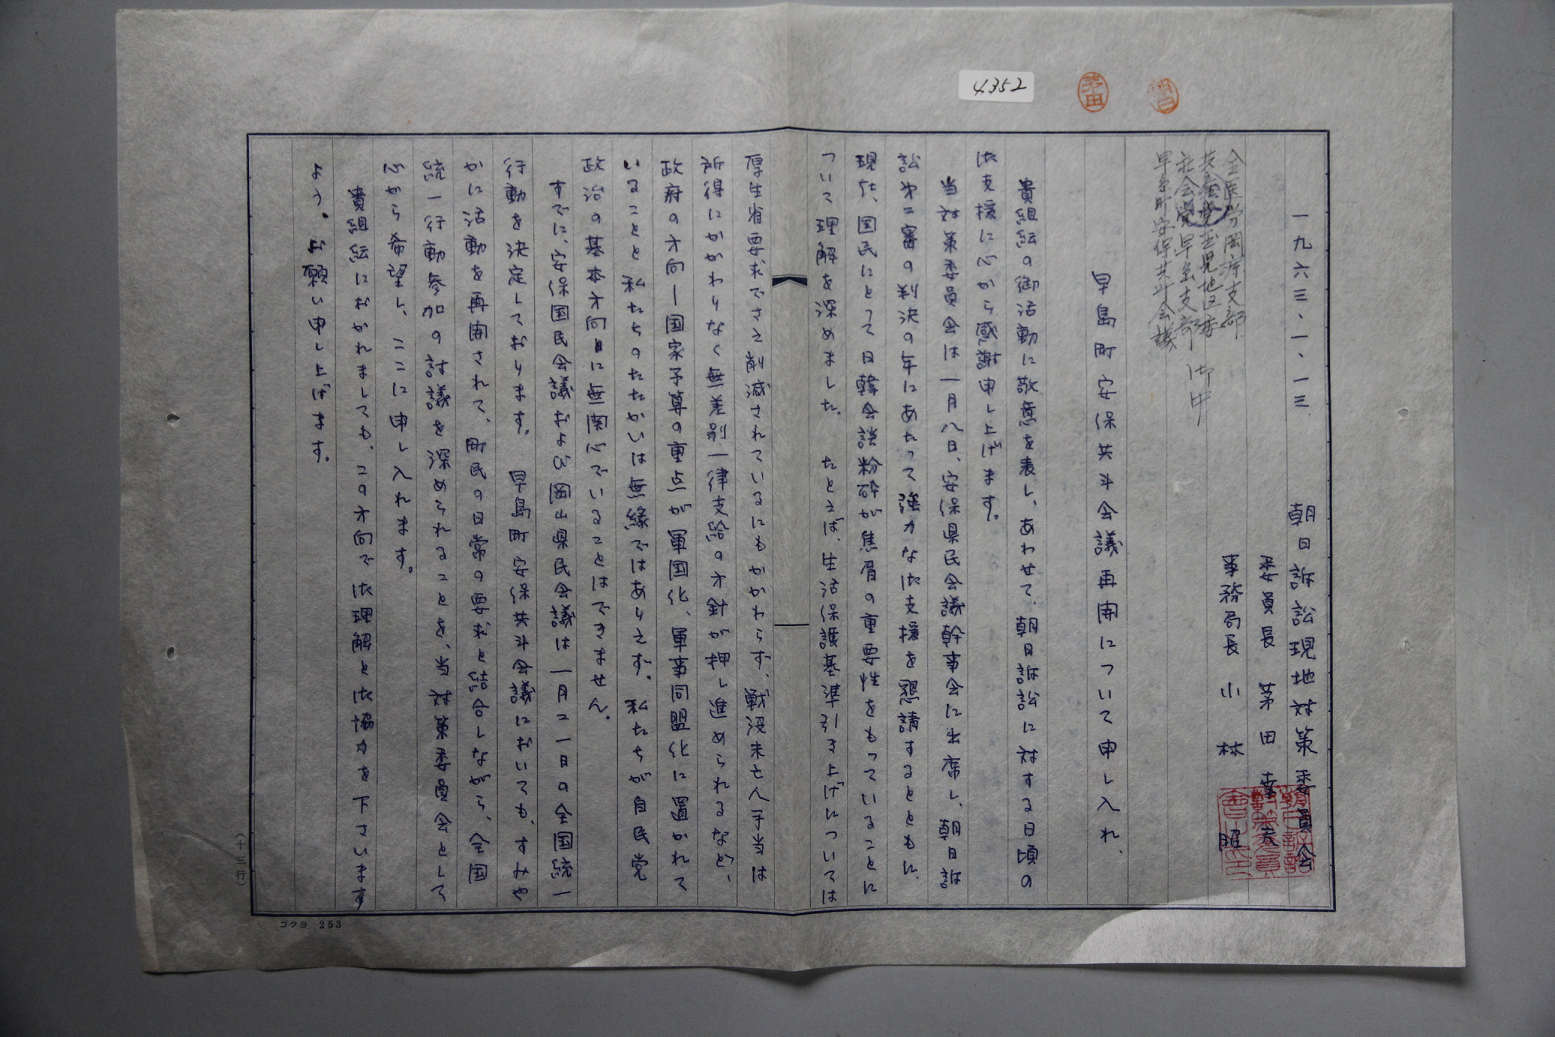 4352
一九六三、一、一三
朝日訴訟現地対策委員会
委員長 茅田
事務局長 小林
全医労岡療支部
早島支部
早島町安保共斗会議
御中
早島町安保共斗会議再開について申し入れ、
貴組織の御活動に敬意を表し、あわせて、朝日訴訟に対する日頃の
御支援に心から感謝申し上げます。
当対策委員会は一月八日、安保県民会議幹事会に出席し、朝日訴
訟第二審の判決の年にあたって強力な御支援を懇請するとともに、
現在、国民にとって日韓会談粉砕が焦眉の重要性をもっていることに
ついて理解を深めました。 たとえば、生活保護基準引き上げについては
厚生省要求でさえ削減されているにもかかわらず、戦没未亡人手当は
所得にかかわりなく無差別一律支給の方針が押し進められるなど、
政府の方向―国家予算の重点が軍国化、軍事同盟化に置かれて
いることと私たちのたたかいは無縁ではありえず。私たちが自民党
政治の基本方向に無関心でいることはできません。
すでに、安保国民会議および岡山県民会議は一月二一日の全国統一
行動を決定しております。 早島町安保共斗会議においても、すみや
かに活動を再開されて、町民の日常の要求と結合しながら、全国
統一行動参加の討議を深められることを、当対策委員会として
心から希望し、ここに申し入れます。
貴組織におかれましても、この方向で御理解と御協力を下さいます
よう。お願い申し上げます。
(十三行)
コクヨ 253